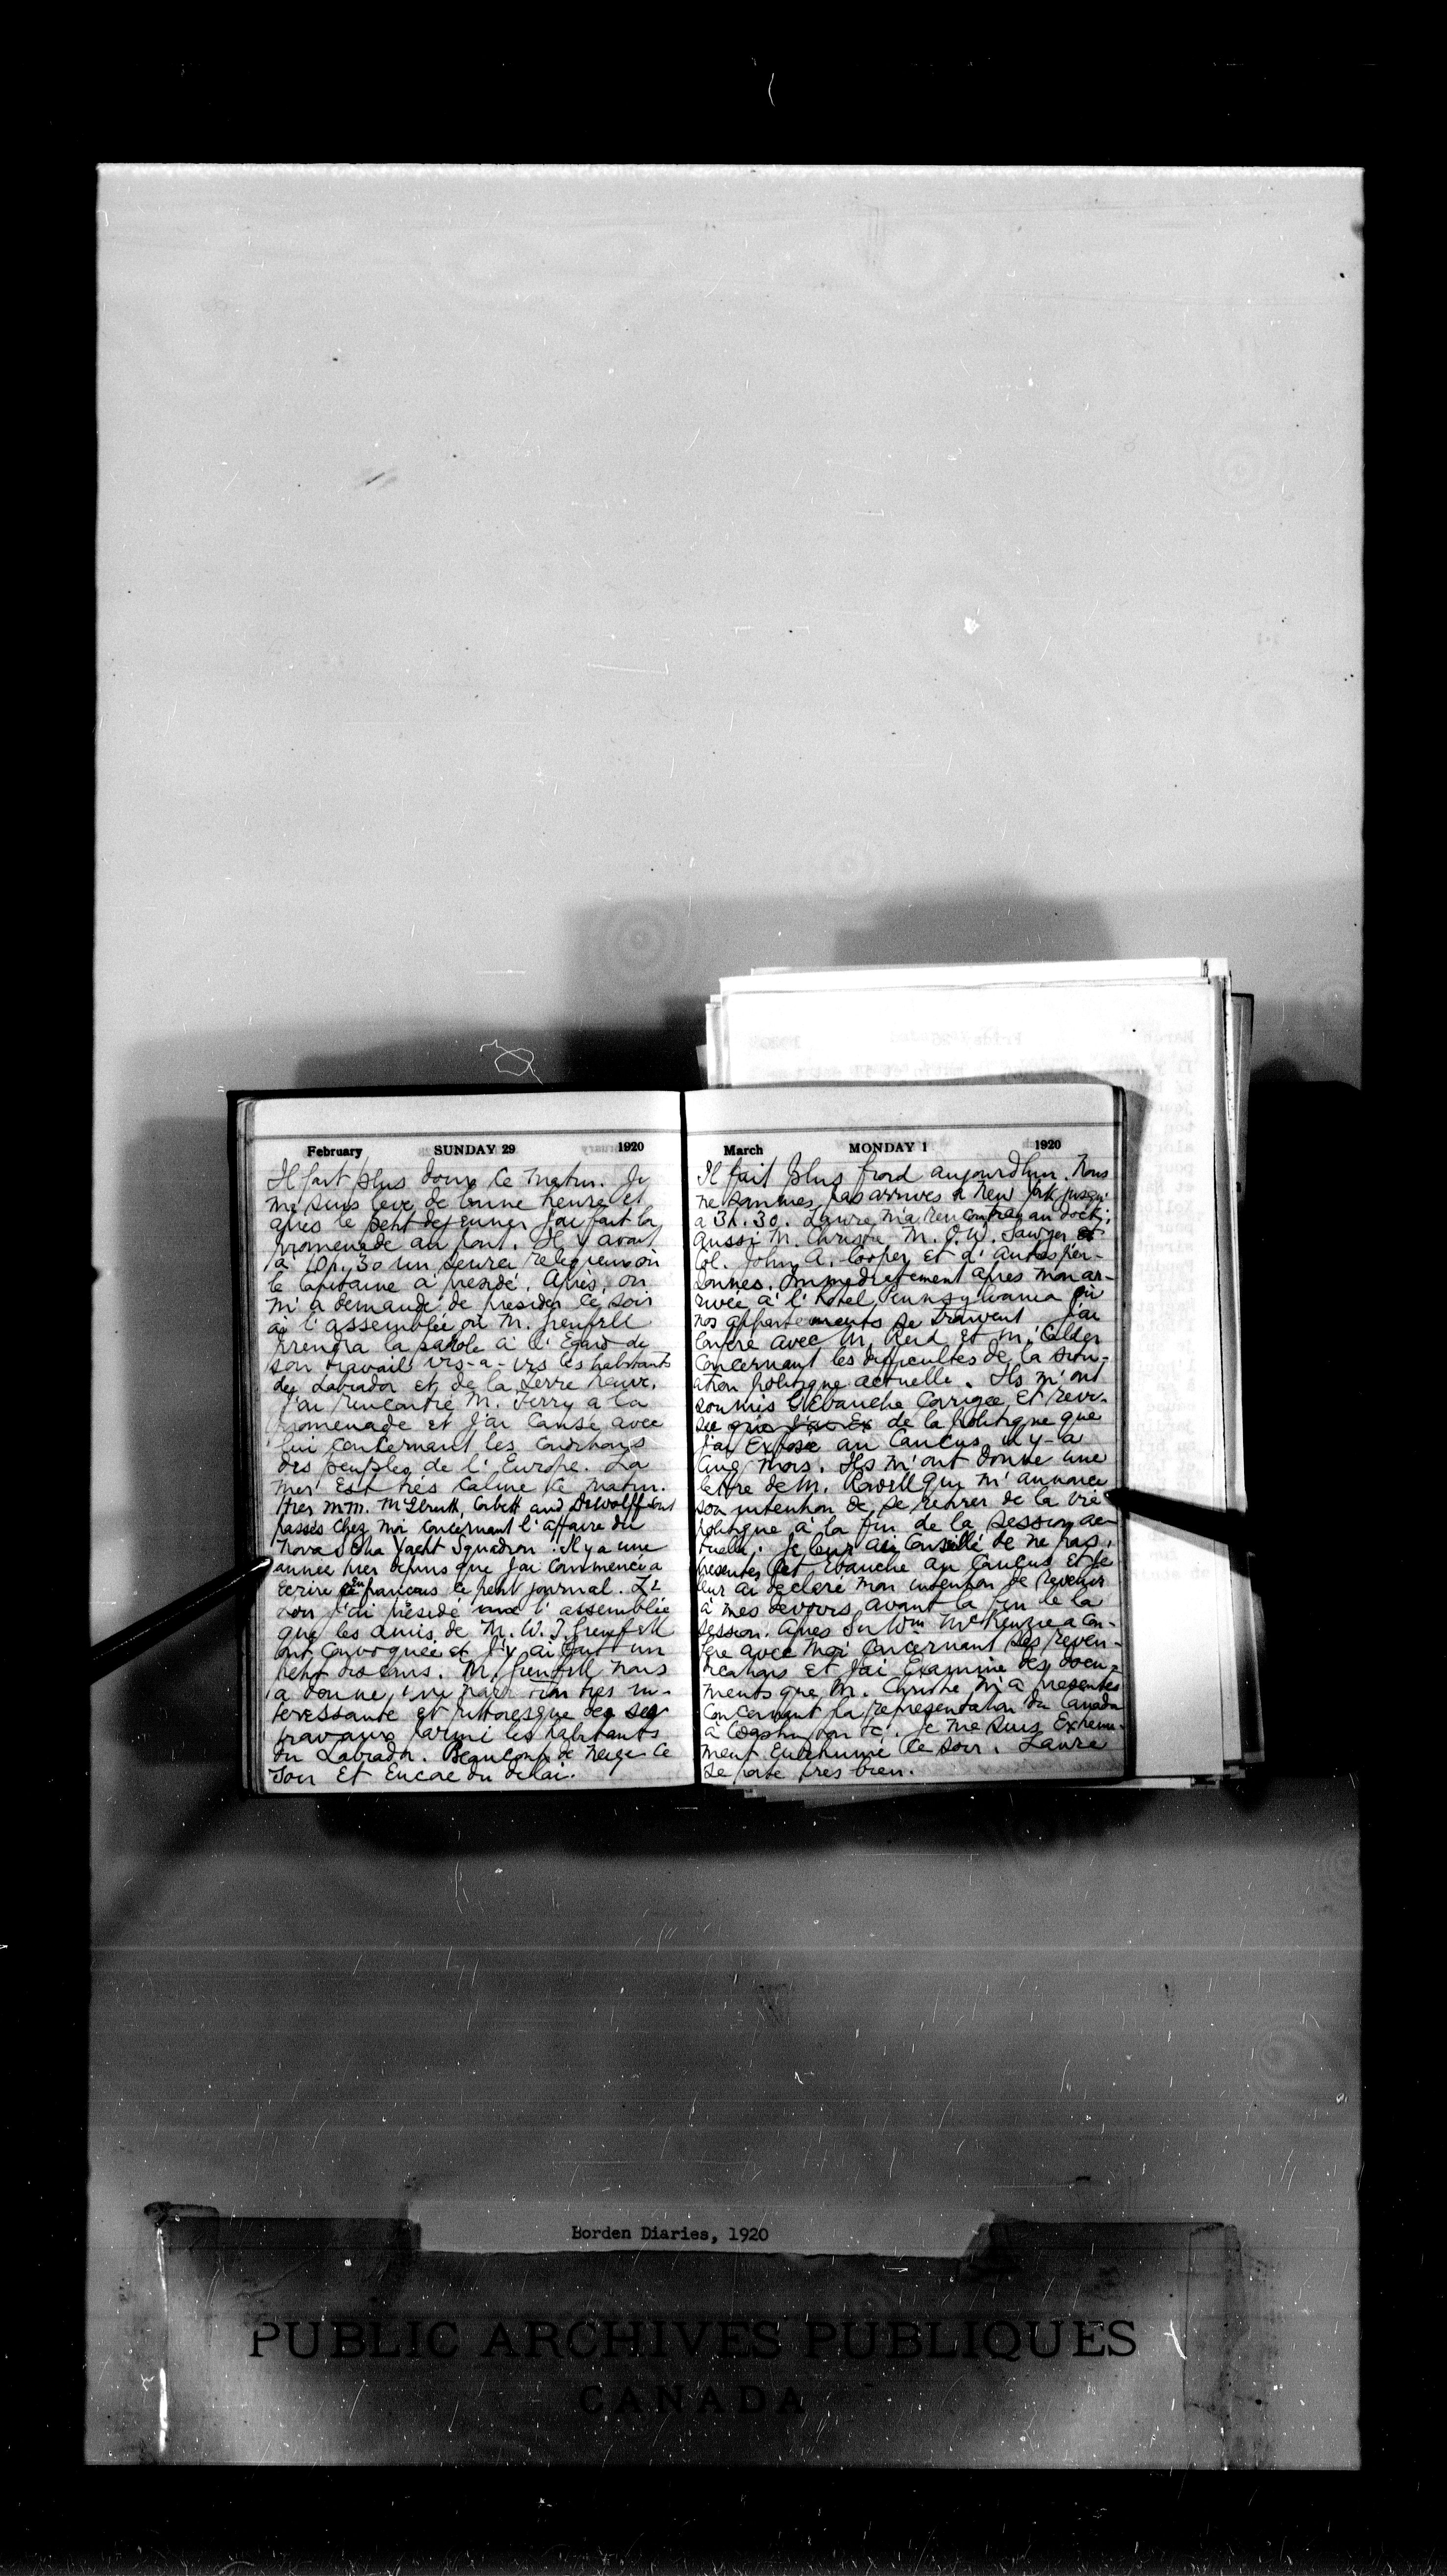 February SUNDAY 29 1920
Il fait plus doux ce matin. Je
me suis levé de bonne heure et
après le petit dejeuner j'ai fait la
promenade au pont. Il y avait
à 10h. 30 un service religieux où
le Capitaine a présidé. Après, on
m'a demandé de presider ce soir
à l'assemblée où M. Grenfell
prendra la parole à l'Egard de
son travail vis-a-vis les habitants
du Labrador et de la Terre neuve.
J'ai rencontré M. Perry a la
promenade et j'ai causé avec
lui concernant les conditions
des peuples de l'Europe. La
mer est très calme ce matin.
Hier MM. Corbett and DeWolff sont
passés chez moi concernant l'affaire du
Nova Scotia Yacht Squadron. Il y a une
année hier depuis que j'ai commencé a
Ecrire en français ce petit journal. Le
soir j'ai présidé l'assemblée
que les amis de M. W. T. Grenfell
ont convoquée et j'y ai fait un
petit discours. M. Grenfell nous
a donné une très in-
teressante et pittoresque des ses
travaux parmi les habitants
du Labrador. Beaucoup de neige ce
soir et Encore du delai.
March MONDAY 1 1920
Il fait plus froid aujourdhui. Nous
ne sommes pas arrivés a New York jusqu'
a 3h. 30. Laura m'a rencontré au dock;
aussi M. Christie M. O. W. Sawyer et
Col. John A. Cooper et d'autres per-
sonnes. Immediatement après mon ar-
rivée à l'hotel Pennsylvania où
nos appartements se trouvent j'ai
confere avec M. Reid et M. Calder
concernant les difficultes de la situ-
ation politique actuelle. Ils m'ont
soumis l'Ebauche corrigee et revi-
see que j'ai Ex de la politique que
j'ai Exposé au caucus il y-a
cinq mois. Ils m'ont donné une
lettre de M. Rowell qui m'annonce
son intention de se retirer de la vie
politique à la fin de la session ac-
tuelle. Je leur ai conseillé de ne pas
presenter cet ebauche au caucus et je
leur ai declaré mon intention de revenir
à mes devoirs avant la fin de la
session. Apres Sir Wm McKenzie a con-
fere avec moi concernant ses reven-
dications et j'ai Examiné des docu-
ments que M. Christie m'a presentés
concernant la representation du Canada
à Washington &c. Je me suis Extreme-
ment Enrhumé ce soir. Laura
se porte très bien.
Borden Diaries, 1920
PUBLIC ARCHIVES PUBLIQUES
CANADA